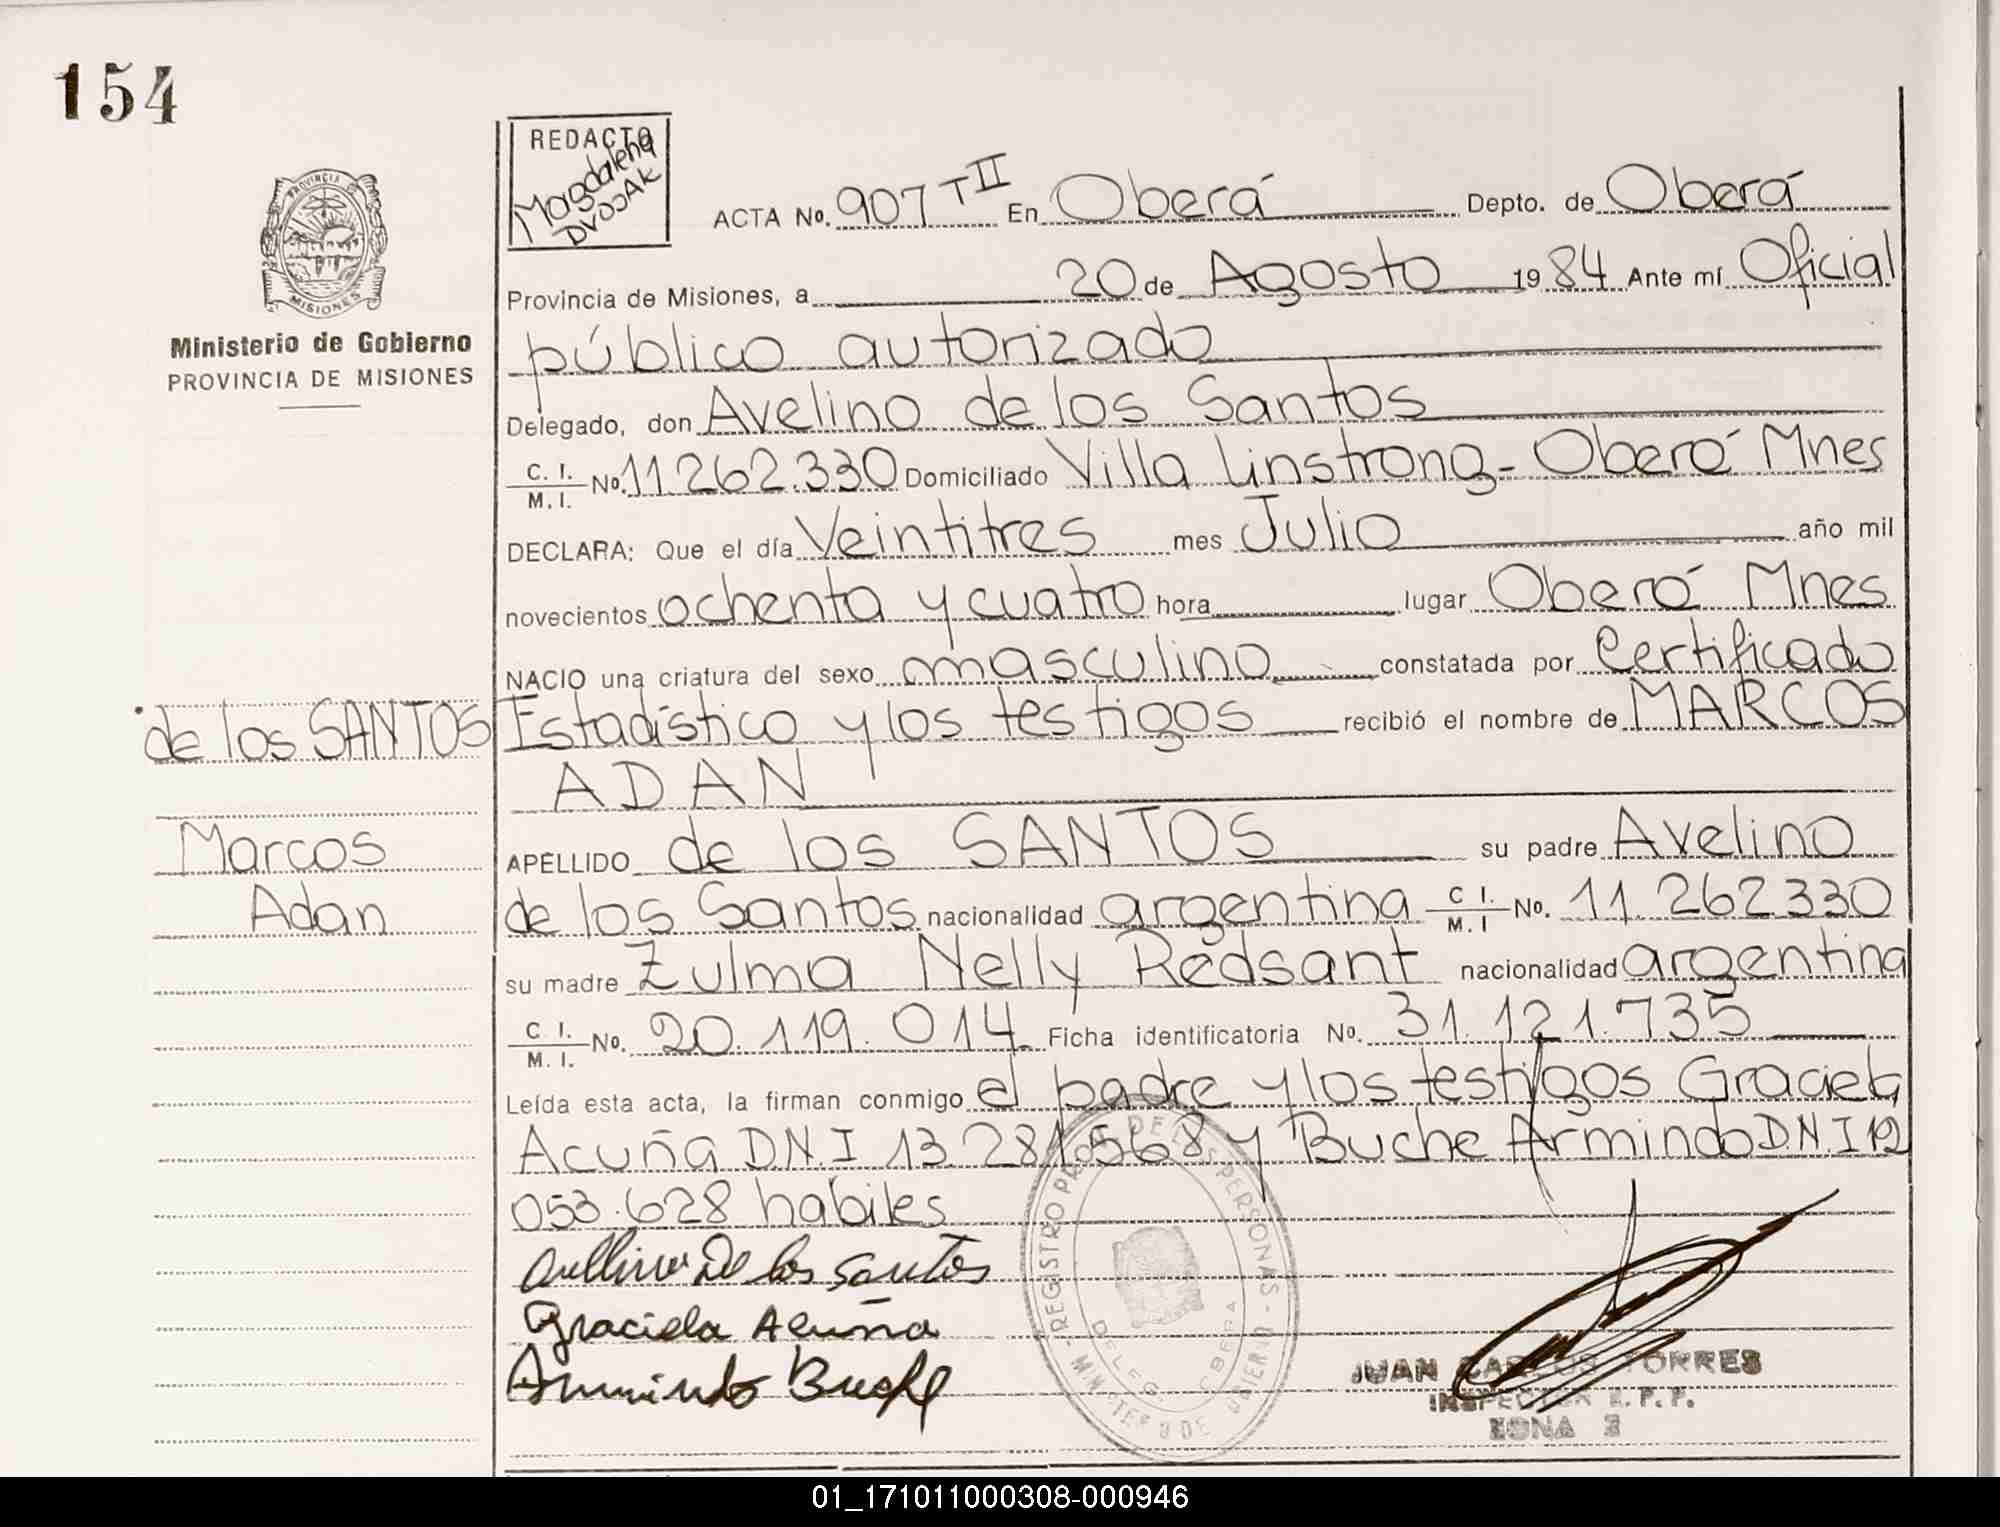 154
PROVINCIA
MISIONES
Ministerio de Gobierno
PROVINCIA DE MISIONES
REDACTO
Magdalena
DVOJAK
ACTA No. 907 T II En Oberá Depto. de Oberá
Provincia de Misiones, a 20 de Agosto 1984 Ante mí Oficial
público autorizado
Delegado, don Avelino de los Santos
C. I. / M. I. No. 11.262.330 Domiciliado Villa Linstrong - Oberá Mnes
DECLARA: Que el día Veintitres mes Julio año mil
novecientos ochenta y cuatro hora lugar Oberá Mnes
NACIO una criatura del sexo masculino constatada por Certificado
Estadístico y los testigos recibió el nombre de MARCOS
ADAN
APELLIDO de los SANTOS su padre Avelino
de los Santos nacionalidad argentina C I. / M. I No. 11.262.330
su madre Zulma Nelly Redsant nacionalidad argentina
C. I. / M. I. No. 20.119.014 Ficha identificatoria No. 31.121.735
Leída esta acta, la firman conmigo el padre y los testigos Graciela
Acuña D.N.I 13.281.568 y Buche Armindo D.N.I 12
053.628 habiles
de los SANTOS
Marcos
Adan
Avelino De los Santos
Graciela Acuña
Armindo Buche
JUAN CARLOS TORRES
INSPECTOR
ZONA 3
01_171011000308-000946